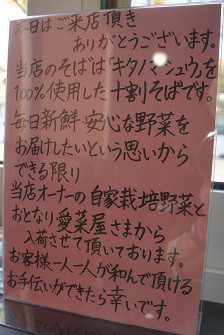 本日はご来店頂き
ありがとうございます。
当店のそばは「キタノマシュウ」を
100%使用した十割そばです。
毎日新鮮・安心な野菜を
お届けしたいという思いから
できる限り
当店オーナーの自家栽培野菜と
おとなり愛菜屋さまから
入荷させて頂いております。
お客様一人一人が和んで頂ける
お手伝いができたら幸いです。